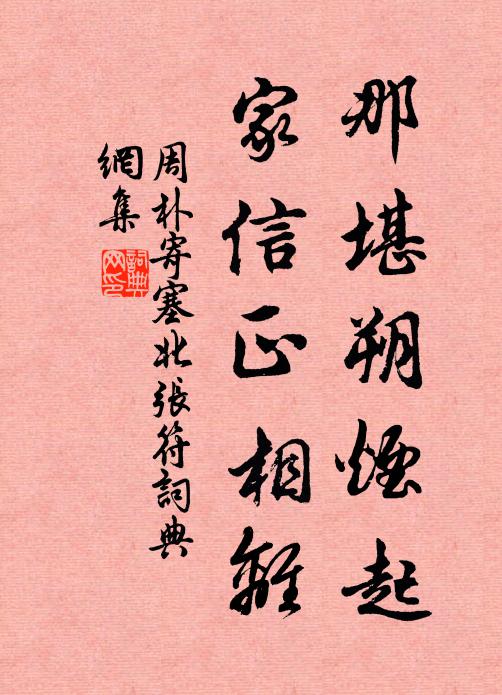 那堪朔煙起
家信正相離
周朴寄塞北張符詞典
網集
詞典
网印